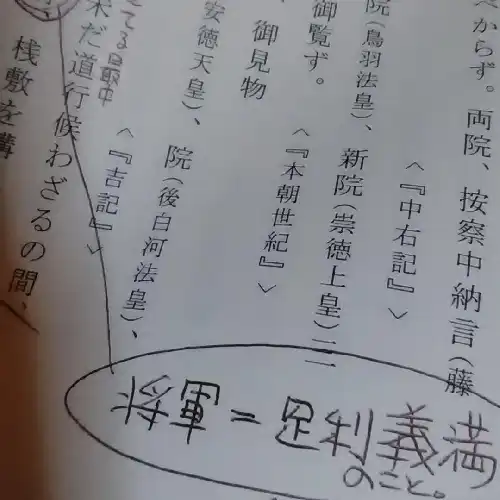 べからず。両院、按察中納言(藤
〈『中右記』〉
院(鳥羽法皇)、新院(崇徳上皇)二
御覧ず。
〈『本朝世紀』〉
御見物
安徳天皇)、院(後白河法皇)、
てる最中
〈『吉記』〉
未だ道行候わざるの間、
桟敷を構
将軍=足利義満
のこと。